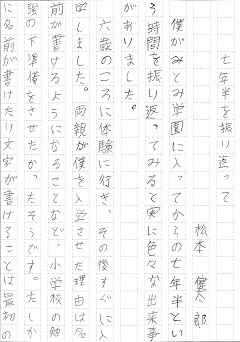 七年半を振り返って
松本 健太郎
僕がみとみ学園に入ってからの七年半とい
う時間を振り返ってみると実に色々な出来事
がありました。
六歳のころに体験に行き、その後すぐに入
学しました。両親が僕を入学させた理由は名
前が書けるようになることなど、小学校の勉
強の下準備をさせたかったそうです。たしか
に名前が書けたり文字が書けることは最初の